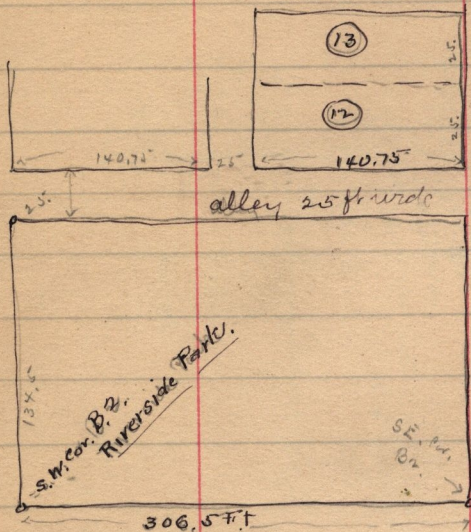 13
25.
12
25.
140.75
25
140.75
25.
alley 25 ft wide
134.5
S.W. cor. B.2.
Riverside Park.
SE. cor.
B2.
306.5 Ft